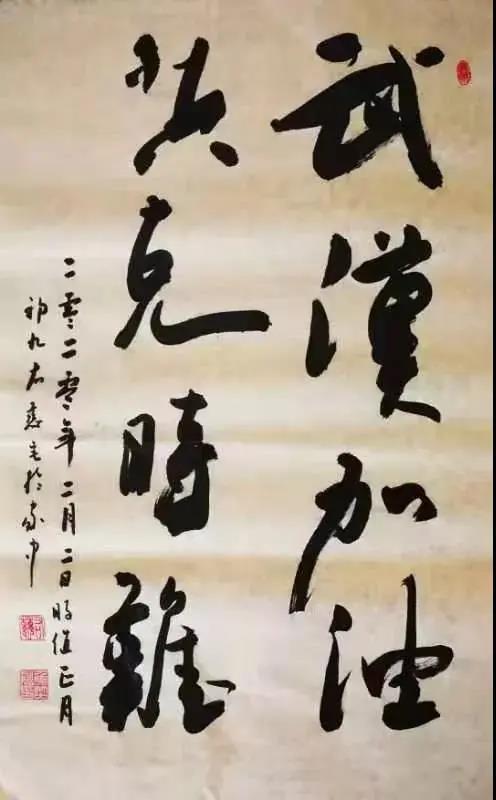 武漢加油
共克時難
二零二零年二月二日时值正月
初九於家中